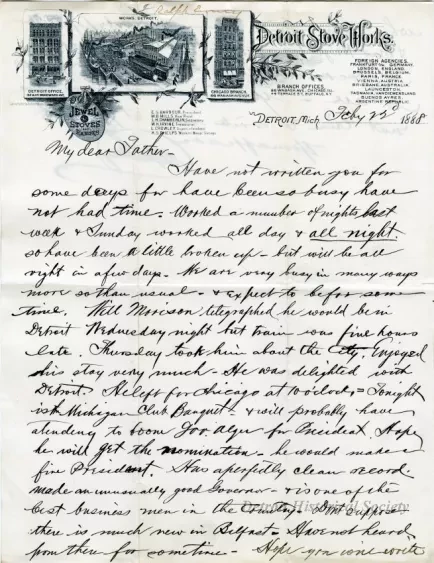 WORKS, DETROIT.
Detroit Stove Works.
DETROIT OFFICE,
CHICAGO BRANCH,
JEWEL
STOVES
RANGES
BRANCH OFFICES.
FOREIGN AGENCIES.
LONDON, ENGLAND.
BRUSSELS, BELGIUM.
PARIS, FRANCE.
VIENNA, AUSTRIA.
BRISBANE, AUSTRALIA.
LAUNCESTON,
TASMANIA, VANDIEMENSLAND
BUENOS AYRES,
ARGENTINE REPUBLIC.
DETROIT, Mich. Feby 22d 1888
My dear Father-
Have not written you for
some days for have been so busy have
not had time. Worked a number of nights last
week & Sunday worked all day & all night.
so have been a little broken up - but will be all
right in a few days - We are very busy in many ways
more so than usual - & expect to be for some
time. Will Morison telegraphed he would be in
Detroit Wednesday night but train was five hours
late. Thursday took him about the City. Enjoyed
his stay very much - He was delighted with
Detroit. He left for Chicago at 10 oclock = Tonight
is the Michigan Club Banquet - & will probably have
a tendency to boom Gov. Alger for President. Hope
he will get the nomination - he would make a
fine President. Has a perfectly clean record.
made an unusually good Governor - & is one of the
best business men in the Country. Dont suppose
there is much new in Belfast - Have not heard
from there for sometime - Hope you will write
Detroit Historical Society